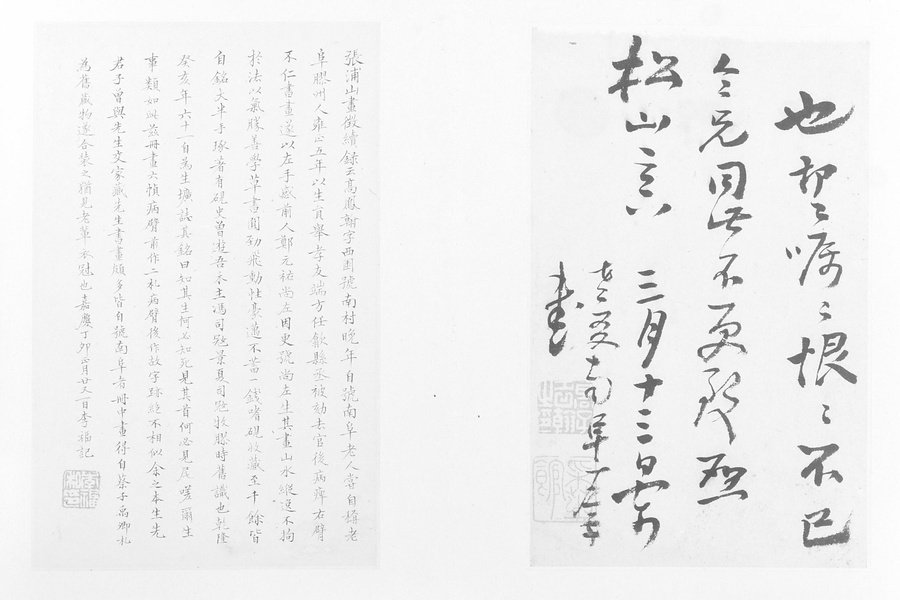 也切々嘱々恨々不已
令兄同此不更啟
松山言 三月十三日
張浦山畫徵續錄云高鳳翰字西園號南村晚年自號南阜老人當自稱老
阜膠州人雍正五年以生員舉孝友端方任歙縣丞被劾去官後病痺右臂
不仁書畫遂以左手感前人鄭元祐尚左因更號尚左生其畫山水縱逸不拘
於法以氣勝善學草書圓勁飛動性豪邁不當一錢嗜硯收藏至千餘皆
自銘大半手琢著有硯史曾遊吾本生馮司冠景夏司冠牧滕時舊識也乾隆
癸亥年六十一自為生壙誌其銘曰知其生何必知死見其首何必見尾嗟爾生
事類如此茲冊畫六幀病臂前作二札病臂後作故字跡經不相似余之本生先
君子曾與先生交家藏先生書畫頗多皆自號南阜者冊中畫得自蔡子禹卿札
為舊藏物遂合裝之猶見老輩交慰也嘉慶丁卯正月廿八日李福記